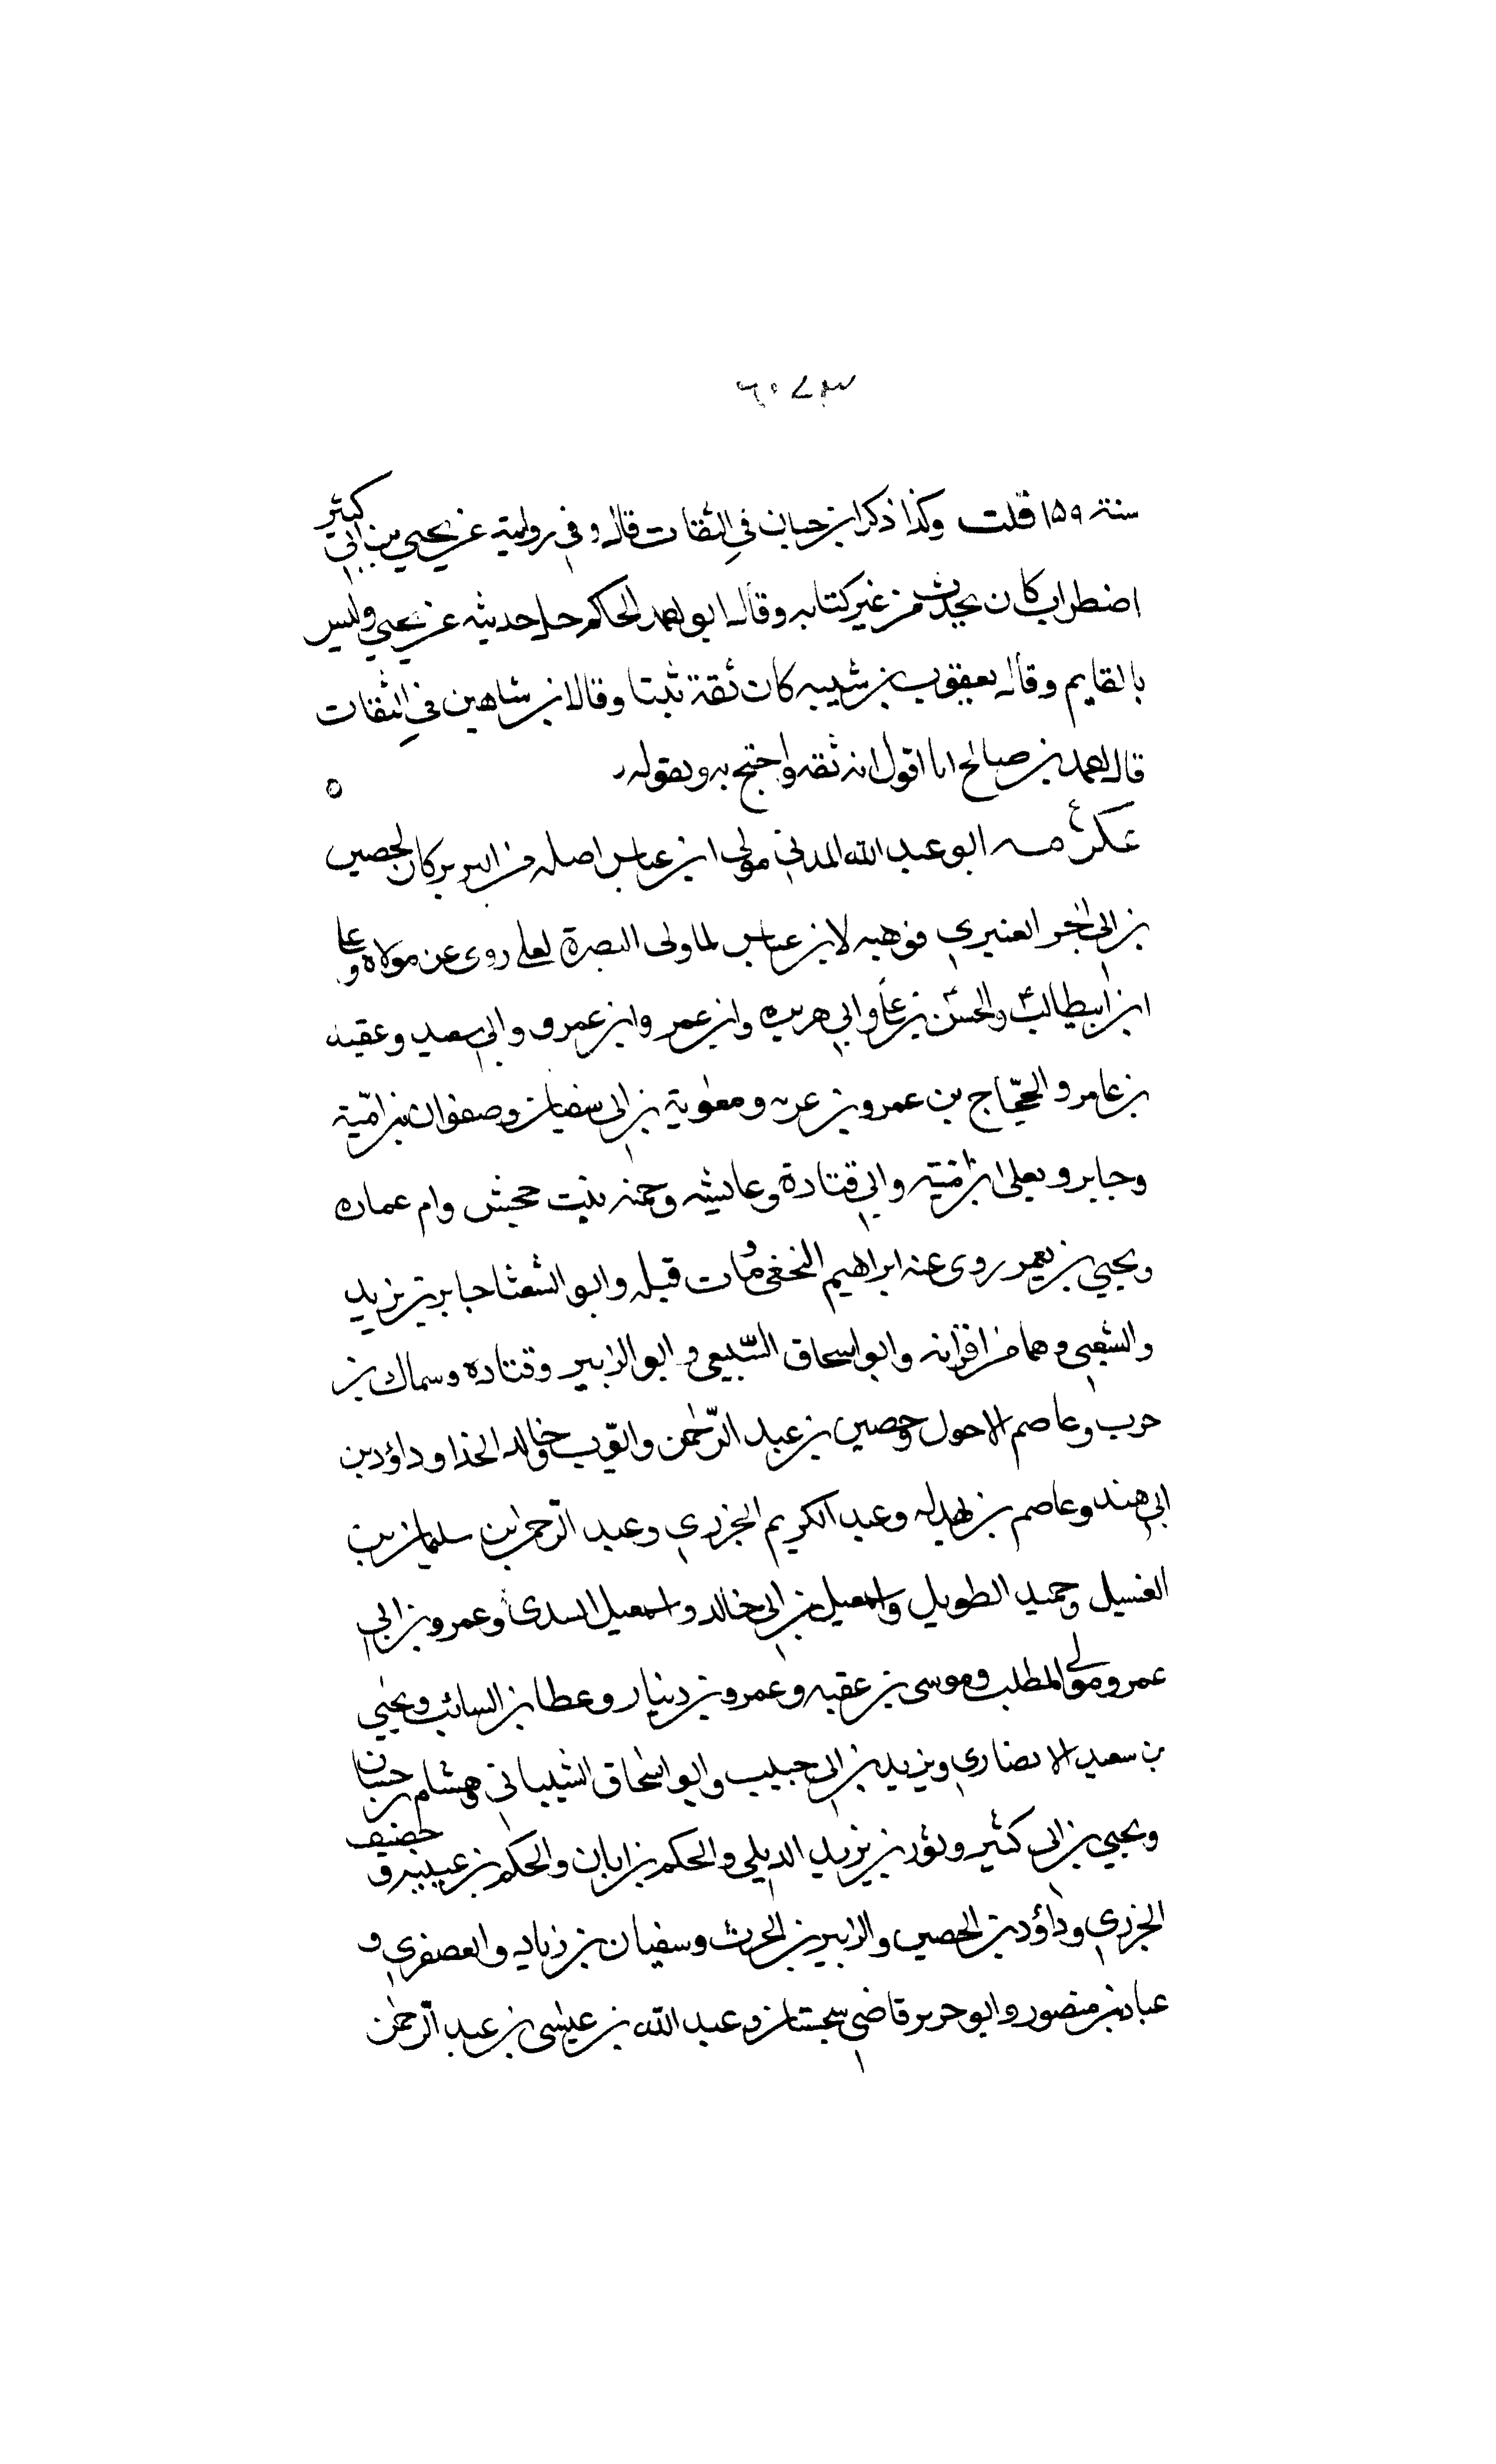 ٦٠٧٣
سنة ١٥٩ قلت وكذا ذكر ابن حبان في الثقات قال وفي روايته عن يحيي بن ابي كثير
اضطراب كان يحدث من غير كتابه وقال ابو احمد الحاكم جل حديثه عن يحيي وليس
بالقايم وقال يعقوب بن شيبه كان ثقة ثبتا وقال ابن شاهين في الثقات
قال احمد بن صالح انا اقول انه ثقه واحتج به وبقوله
عكرمه ابو عبد الله المدني مولى ابن عباس اصله من البربر كان لحصين
بن ابي الحر العنبري فوهبه لابن عباس لما ولى البصرة لعلي روى عن مولاه و علي
ابن ابيطالب والحسن بن علي وابي هريره وابن عمر وابن عمرو وابي سعيد وعقبه
بن عامر والحجّاج بن عمرو بن غزيه ومعٰوية بن ابي سفيان وصفوان بن امّية
وجابر ويعلى ابن امية وابي قتادة وعايشه وحمنه بنت جحش وام عماره
ويحيي بن يعمر روى عنه ابراهيم النخعي ومات قبله وابو الشعثا جابر بن زيد
والشعبي وهما من اقرانه وابو اسحاق السّبيعي وابو الزبير وقتاده وسماك بن
حرب وعاصم الاحول وحصين بن عبد الرّحمٰن وايّوب وخالد الحذا وداؤد بن
ابي هند وعاصم بن بهدله وعبد الكريم الجزري وعبد الرّحمٰن بن سليمان بن
الغسيل وحميد الطويل واسمعيل بن ابي خالد واسمعيل السدي وعمرو بن ابي
عمرو مولى المطلب وموسى بن عقبه وعمرو بن دينار وعطا بن السائب ويحيٰي
بن سعيد الانصاري ويزيد بن ابي حبيب وابو اسحٰاق الشيباني وهشام بن حسان
ويحيي بن ابي كثير وثور بن يزيد الديلي والحكم بن ابان والحكم بن عيينة و خصيف
الجزري وداؤد بن الحصين والزبير بن الحرث وسفيان بن زياد والعصفري و
عباد بن منصور وابو حريز قاضي سجستان وعبد الله بن عيسٰى بن عبد الرّحمٰن